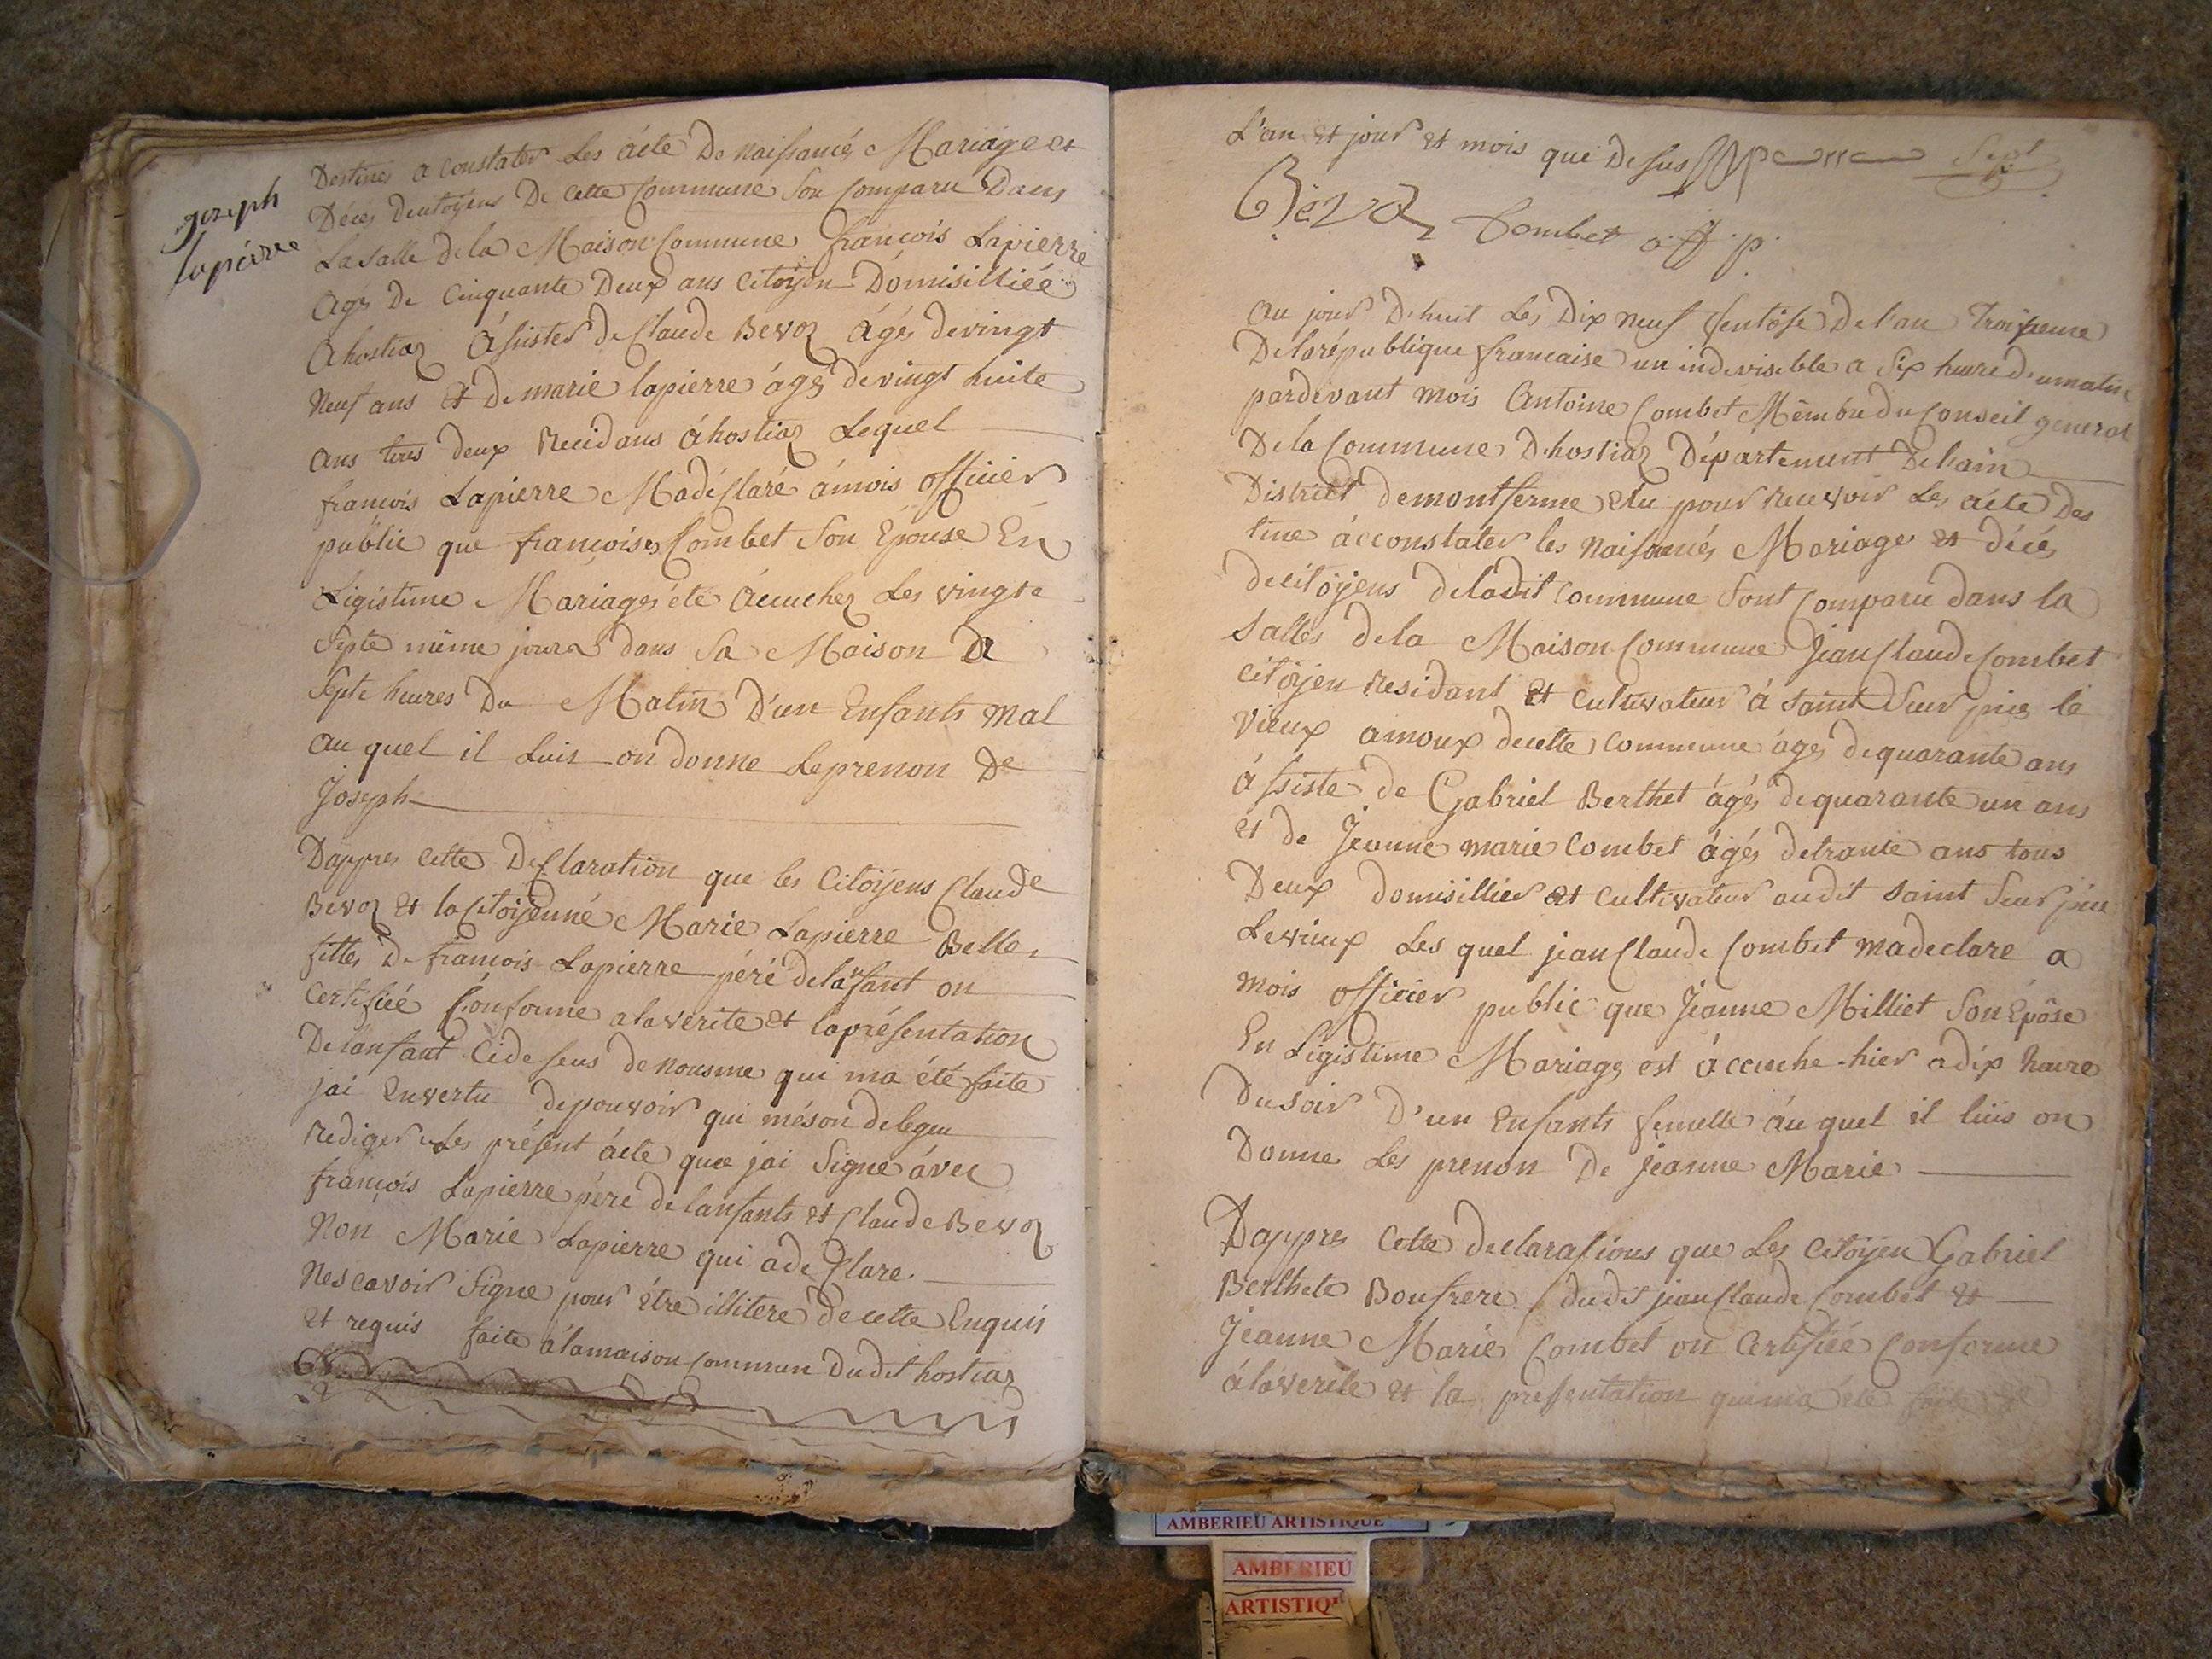 joseph
lapierre
Destines a constater Les acte De naissances Mariage et
Déces decitoyens De cette Commune Son Comparu Dans
La salle de la Maison Commune francois Lapierre
agés De Cinquante Deux ans Citoyen Domisilliée
a hostiaz assister de Claude Bevoz agés de vingt
neuf ans et De marie lapierre ages de vingt huite
ans tous deux Recidans a hostiaz Lequel
francois Lapierre Madéclaré a mois officier
public que francoises Combet Son Epouse En
Ligistime Mariages été acuchez Les vingte
Septe même jours dans Sa Maison a
Septe heures Du Matin D'un Enfants mal
au quel il Luis on donne Le prenon De
Joseph
Dappres cette Declaration que les Citoÿens Claude
Bevoz et la Citoÿenné Marie Lapierre Belle
filles De francois Lapierre péré de lanfant on
Certifiée Conforme a la verite et la présentation
De lanfant Cidesens de nousme qui ma été faite
jai Envertu de pouvoir qui méson delegeu
Rediger Les présent acte que jai Signe avec
francois Lapierre pére de lanfants et Claude Bevoz
Non Marie Lapierre qui a de Clare
Nescavoir Signe pour être illitere de cette Enquis
et requis faite a la maison Commun Dudit hostiaz
L'an et jour et mois que Desus
Bevoz Combet off p.
au jour Dhuit Les Dix neuf ventôse De l'an Troisieme
De la république francaise un indevisible a Six heure Du matin
pardevant mois Antoine Combet Mêmbre du Conseil general
De la Commune D'hostiaz Département De l'ain
District de montferme Elu pour Recevoir Les acte Des
tine a constater les Naisances Mariage et déces
decitoÿens de ladit Commune Sont Comparu dans la
Salles de la Maison Commune Jean Claude Combet
Citoÿen Residant et Cultivateur a Saint Surpies le
vieux amoux de cette Commune ages de quarante ans
assiste de Gabriel Berthet agés de quarante un ans
et de Jeanne marie Combet agés de trante ans tous
Deux domisillier et Cultivateur audit Saint Surpies
Levieux Les quel jean Claude Combet madeclare a
mois officier public que Jeanne Milliet Son Epôse
En Ligistime Mariage est accuche hier a dix heure
Du soir D'un Enfants femelle au quel il luis on
Donne Les prenon De jeanne Marie
Dappres Cette declarations que Les Citoÿen Gabriel
Berthete Boufrere du dit jean Claude Combet et
Jeanne Maries Combet on Certifiée Conforme
a la verite et la pressentation qui ma été faite de
AMBERIEU ARTISTIQUE
AMBERIEU
ARTISTIQ